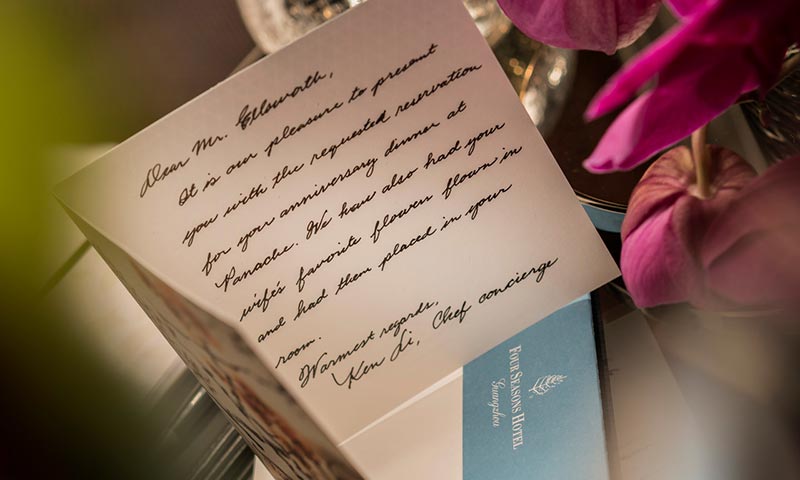 Dear Mr. Ellsworth,
It is our pleasure to present
you with the requested reservation
for your anniversary dinner at
Panache. We have also had your
wife's favorite flowers flown in
and had them placed in your
room.
Warmest regards,
Ken Li, Chef concierge
FOUR SEASONS HOTEL
Guangzhou